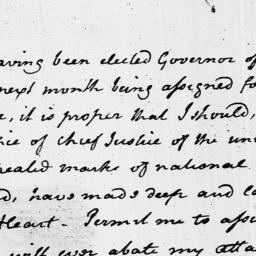 aving been elected Governor of
next month being assigned fo
e, it is proper that I should,
ice of chief Justice of the un
epealed marks of national
d, have made deep and la
Heart - Permit me to assu
will ever abate my atta